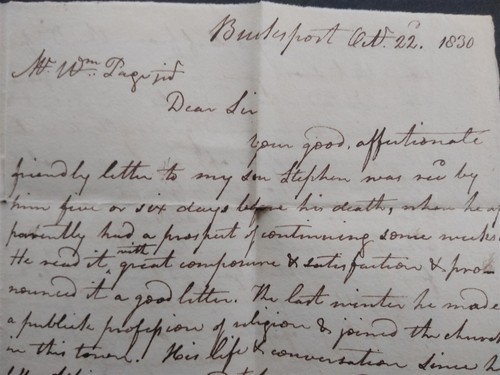 Bucksport Octr. 22d. 1830
Mr. Wm. Page jr
Dear Sir
Your good, affectionate
friendly letter to my son Stephen was recd by
him five or six days before his death, when he ap
parently had a prospect of continuing some weeks
He read it with great composure & satisfaction & pro-
nounced it a good letter. The last winter he made
a publick profession of religion & joined the church
in this town. His life & conversation since h